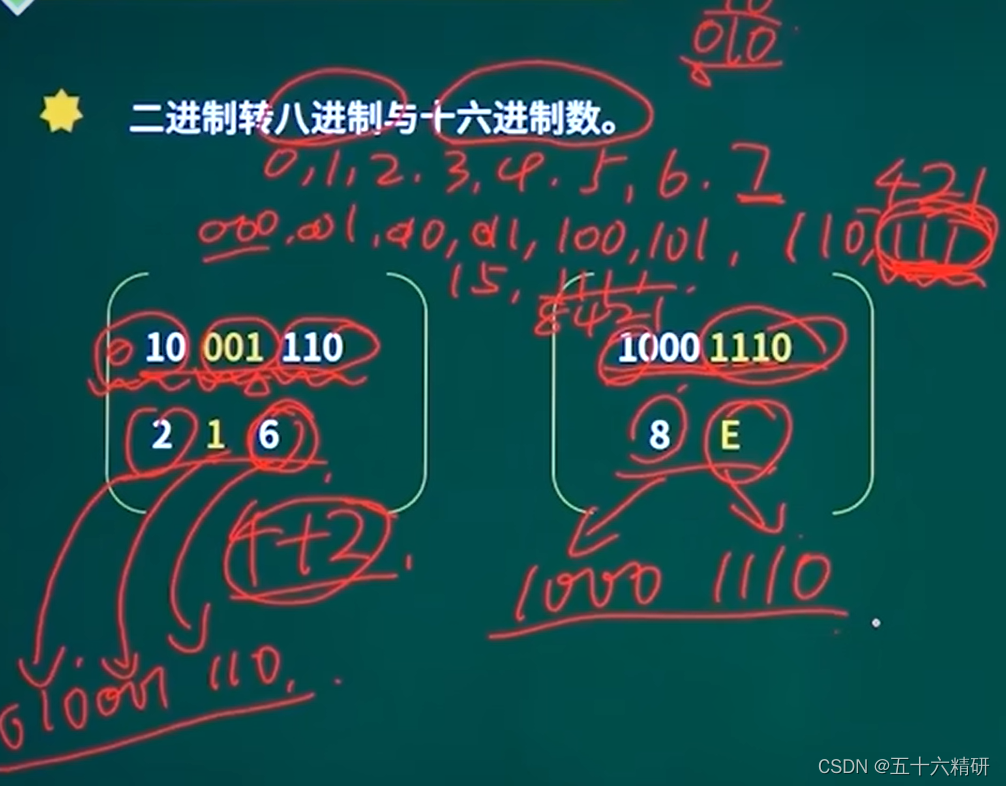 010
二进制转八进制与十六进制数。
0,1,2.3,4.5,6.7
421
000,001,010,011,100,101,110,111
15,1111.
8421
0 10 001 110
1000 1110
2 1 6
8 E
4+2
1000 1110
010001 110
CSDN @五十六精研